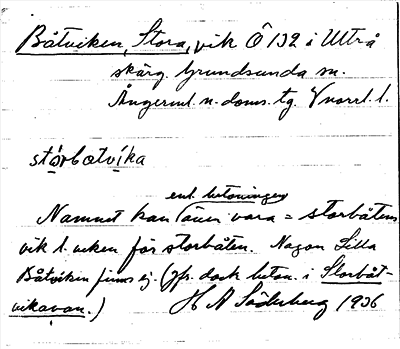 Båtviken, Stora, vik Ö 132 i Utrå
skärg. Grundsunda sn.
Ångerml. n. doms. tg. Y norrl. l.
stórbatvíka
enl. betoningen
Namnet kan även vara = storbåtens
vik l. viken för storbåten. Någon Lilla
Båtviken finns ej. (Jfr. dock beton. i Storbåt-
vikavan.) H A Söderberg 1936